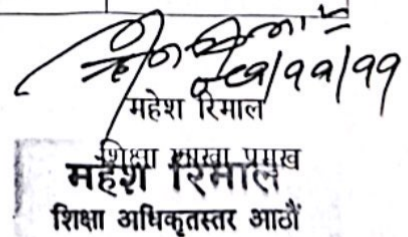 महेश रिमाल
शिक्षा शाखा प्रमुख
महेश रिमाल
शिक्षा अधिकृतस्तर आठौं